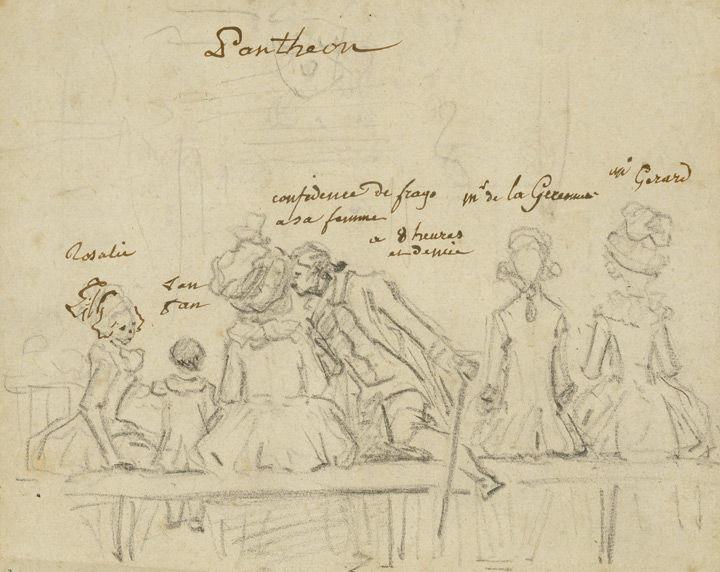 Pantheon
confidence de frago
a sa femme
a 8 heures
et demie
mr de la Gervaisais
mlle Gerard
Rosalie